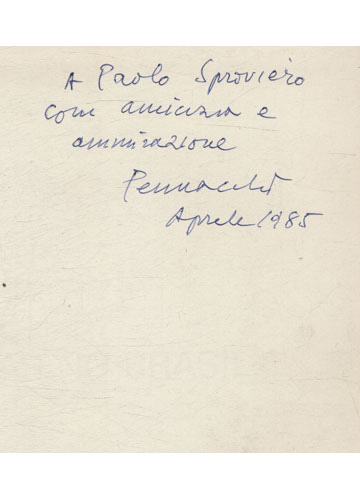 A Paolo Sproviero
com amicizia e
ammirazione
Pennacchi
Aprile 1985